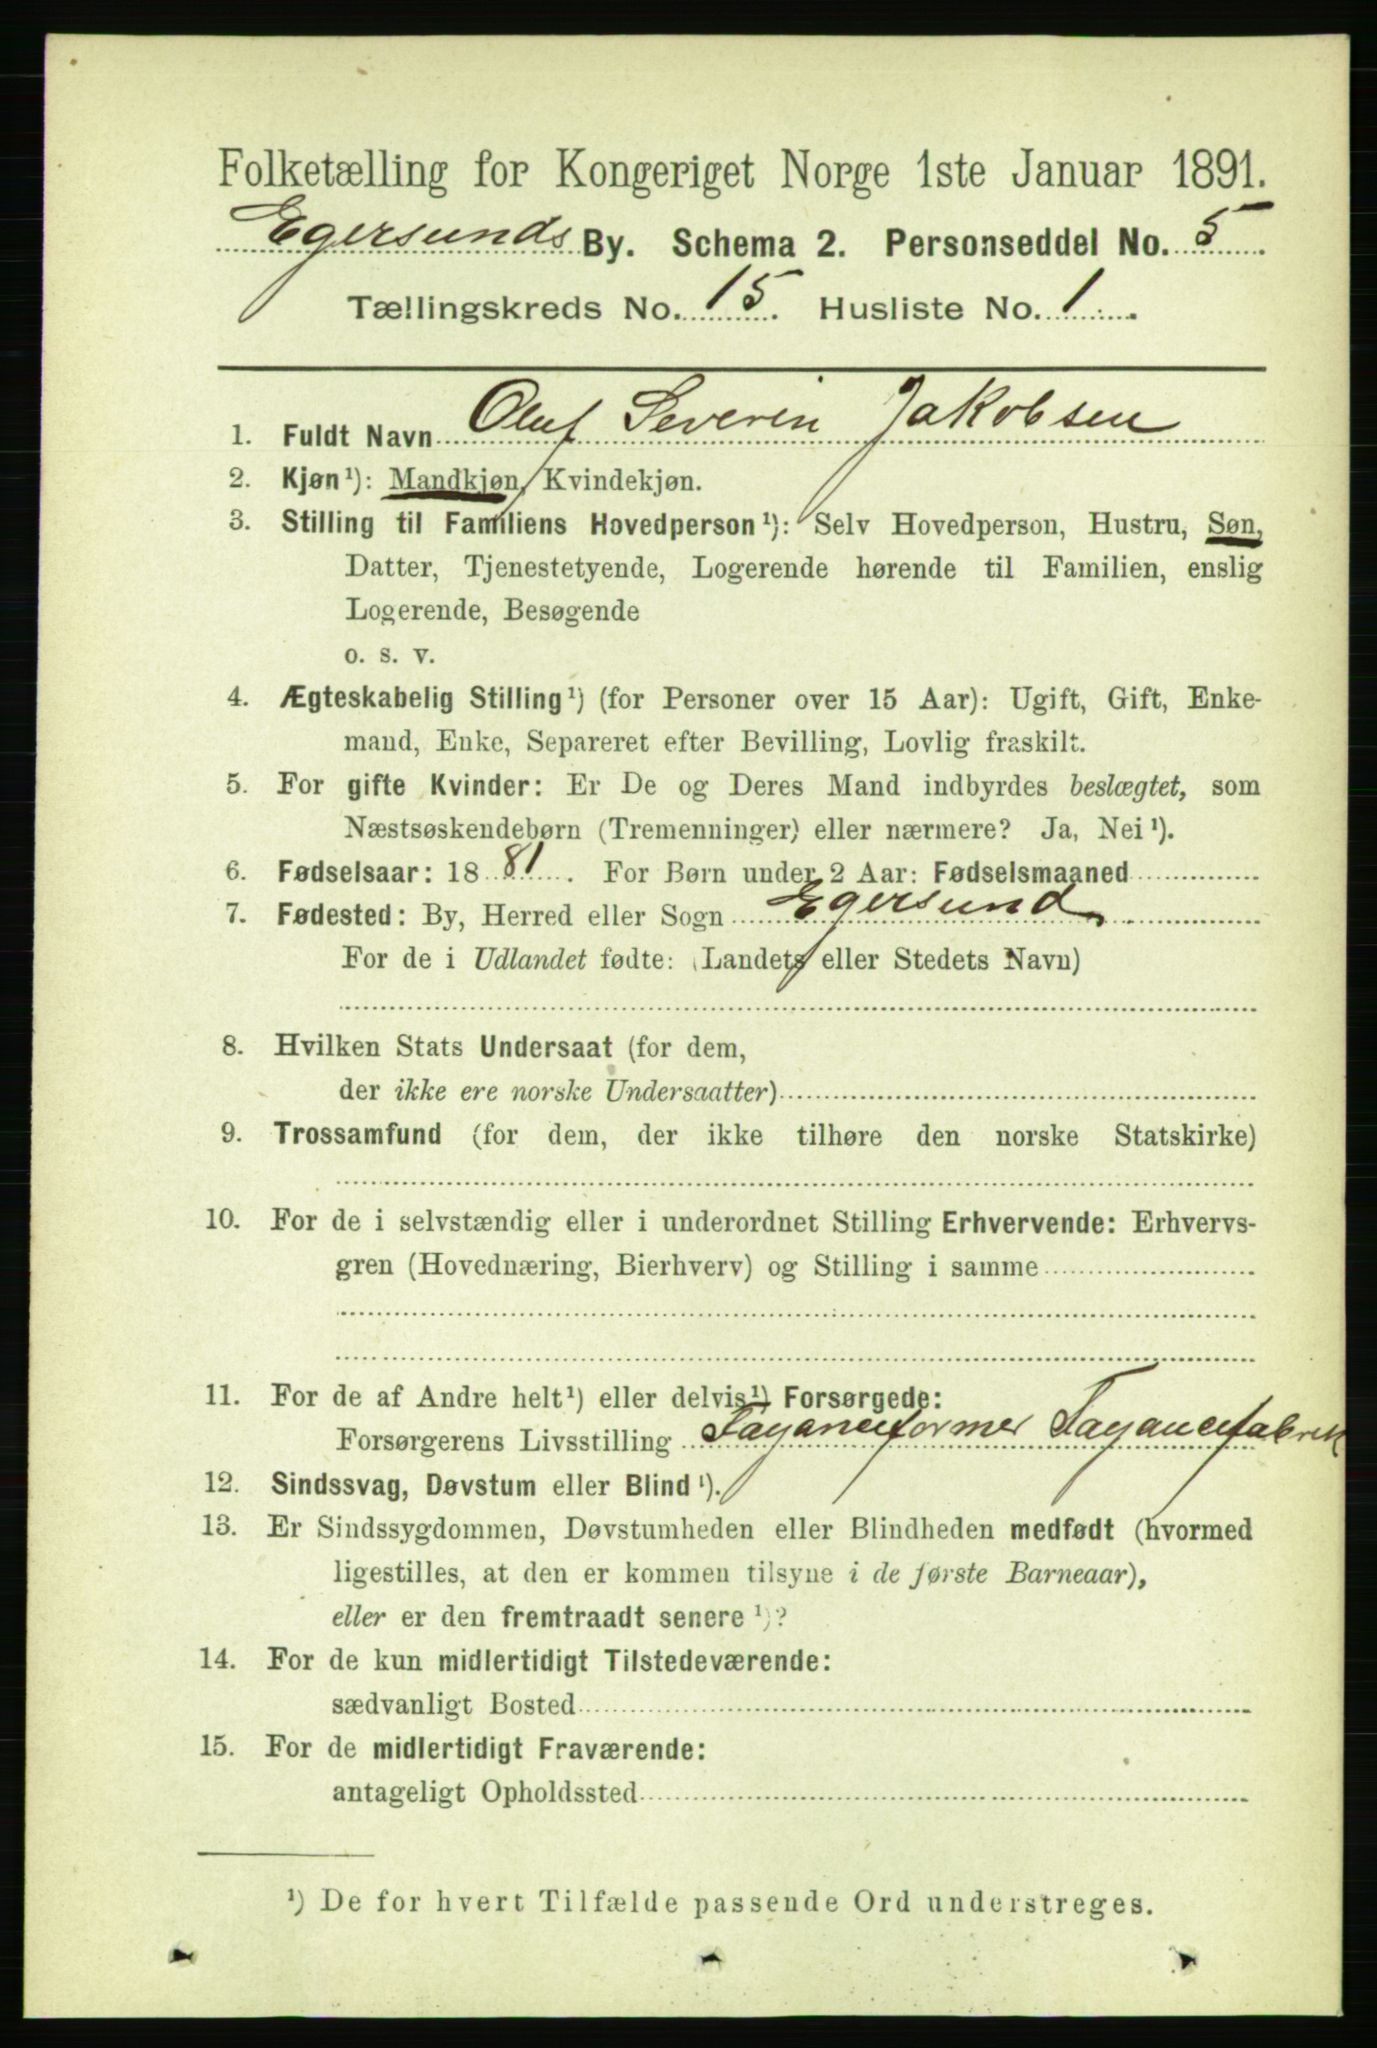 Folketælling for Kongeriget Norge 1ste Januar 1891.
Egersunds By. Schema 2. Personseddel No. 5
Tællingskreds No. 15. Husliste No. 1.
1. Fuldt Navn Oluf Severin Jakobsen
2. Kjøn¹): Mandkjøn, Kvindekjøn.
3. Stilling til Familiens Hovedperson¹): Selv Hovedperson, Hustru, Søn,
Datter, Tjenestetyende, Logerende hørende til Familien, enslig
Logerende, Besøgende
o. s. v.
4. Ægteskabelig Stilling¹) (for Personer over 15 Aar): Ugift, Gift, Enke-
mand, Enke, Separeret efter Bevilling, Lovlig fraskilt.
5. For gifte Kvinder: Er De og Deres Mand indbyrdes beslægtet, som
Næstsøskendebørn (Tremenninger) eller nærmere? Ja, Nei¹).
6. Fødselsaar: 1881. For Børn under 2 Aar: Fødselsmaaned
7. Fødested: By, Herred eller Sogn Egersund
For de i Udlandet fødte: (Landets eller Stedets Navn)
8. Hvilken Stats Undersaat (for dem,
der ikke ere norske Undersaatter)
9. Trossamfund (for dem, der ikke tilhøre den norske Statskirke)
10. For de i selvstændig eller i underordnet Stilling Erhvervende: Erhvervs-
gren (Hovednæring, Bierhverv) og Stilling i samme
11. For de af Andre helt¹) eller delvis¹) Forsørgede:
Forsørgerens Livsstilling Fayanceformer Fayancefabrik
12. Sindssvag, Døvstum eller Blind¹).
13. Er Sindssygdommen, Døvstumheden eller Blindheden medfødt (hvormed
ligestilles, at den er kommen tilsyne i de første Barneaar),
eller er den fremtraadt senere¹)?
14. For de kun midlertidigt Tilstedeværende:
sædvanligt Bosted
15. For de midlertidigt Fraværende:
antageligt Opholdssted
¹) De for hvert Tilfælde passende Ord understreges.